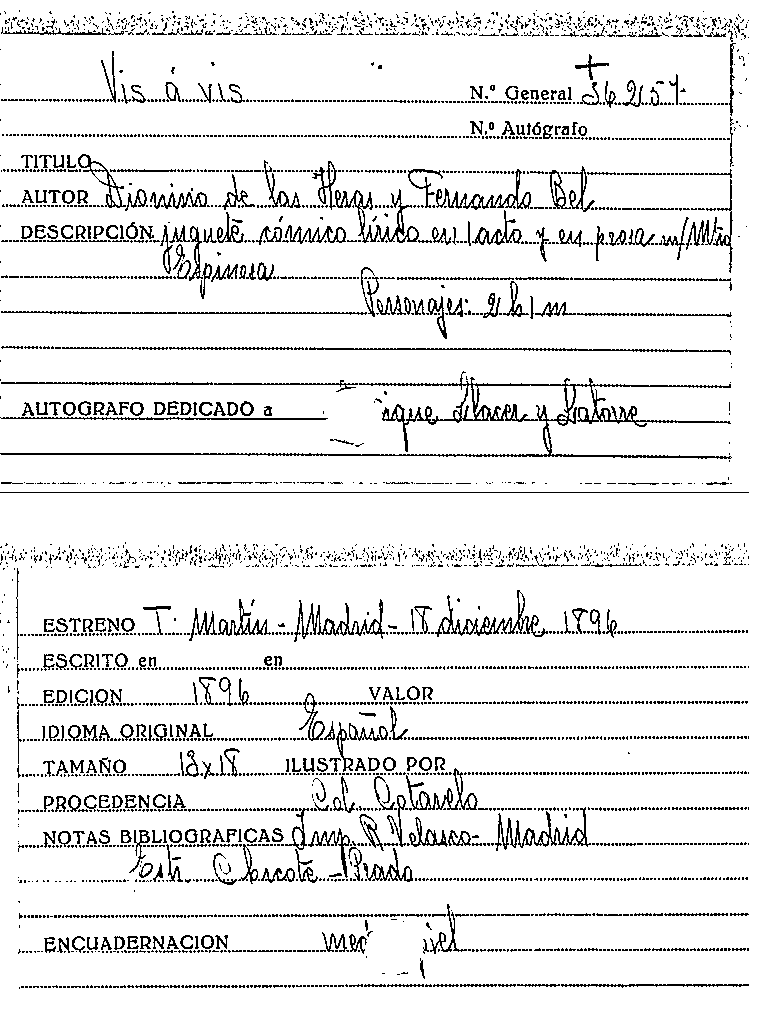 Vis á vis
N.º General 362157
N.º Autógrafo
TITULO
AUTOR Dionisio de las Heras y Fernando Bel
DESCRIPCIÓN juguete cómico lírico en 1 acto y en prosa m/ Mtro
Espinosa
Personajes: 2 h 1 m
AUTOGRAFO DEDICADO a ique Llacer y Latorre
ESTRENO T. Martín - Madrid - 18 diciembre 1896
ESCRITO en en
EDICION 1896 VALOR
IDIOMA ORIGINAL Español
TAMAÑO 13x18 ILUSTRADO POR
PROCEDENCIA Col. Cotarelo
NOTAS BIBLIOGRAFICAS Imp. R Velasco - Madrid
Estr. Chicote - Prado
ENCUADERNACION